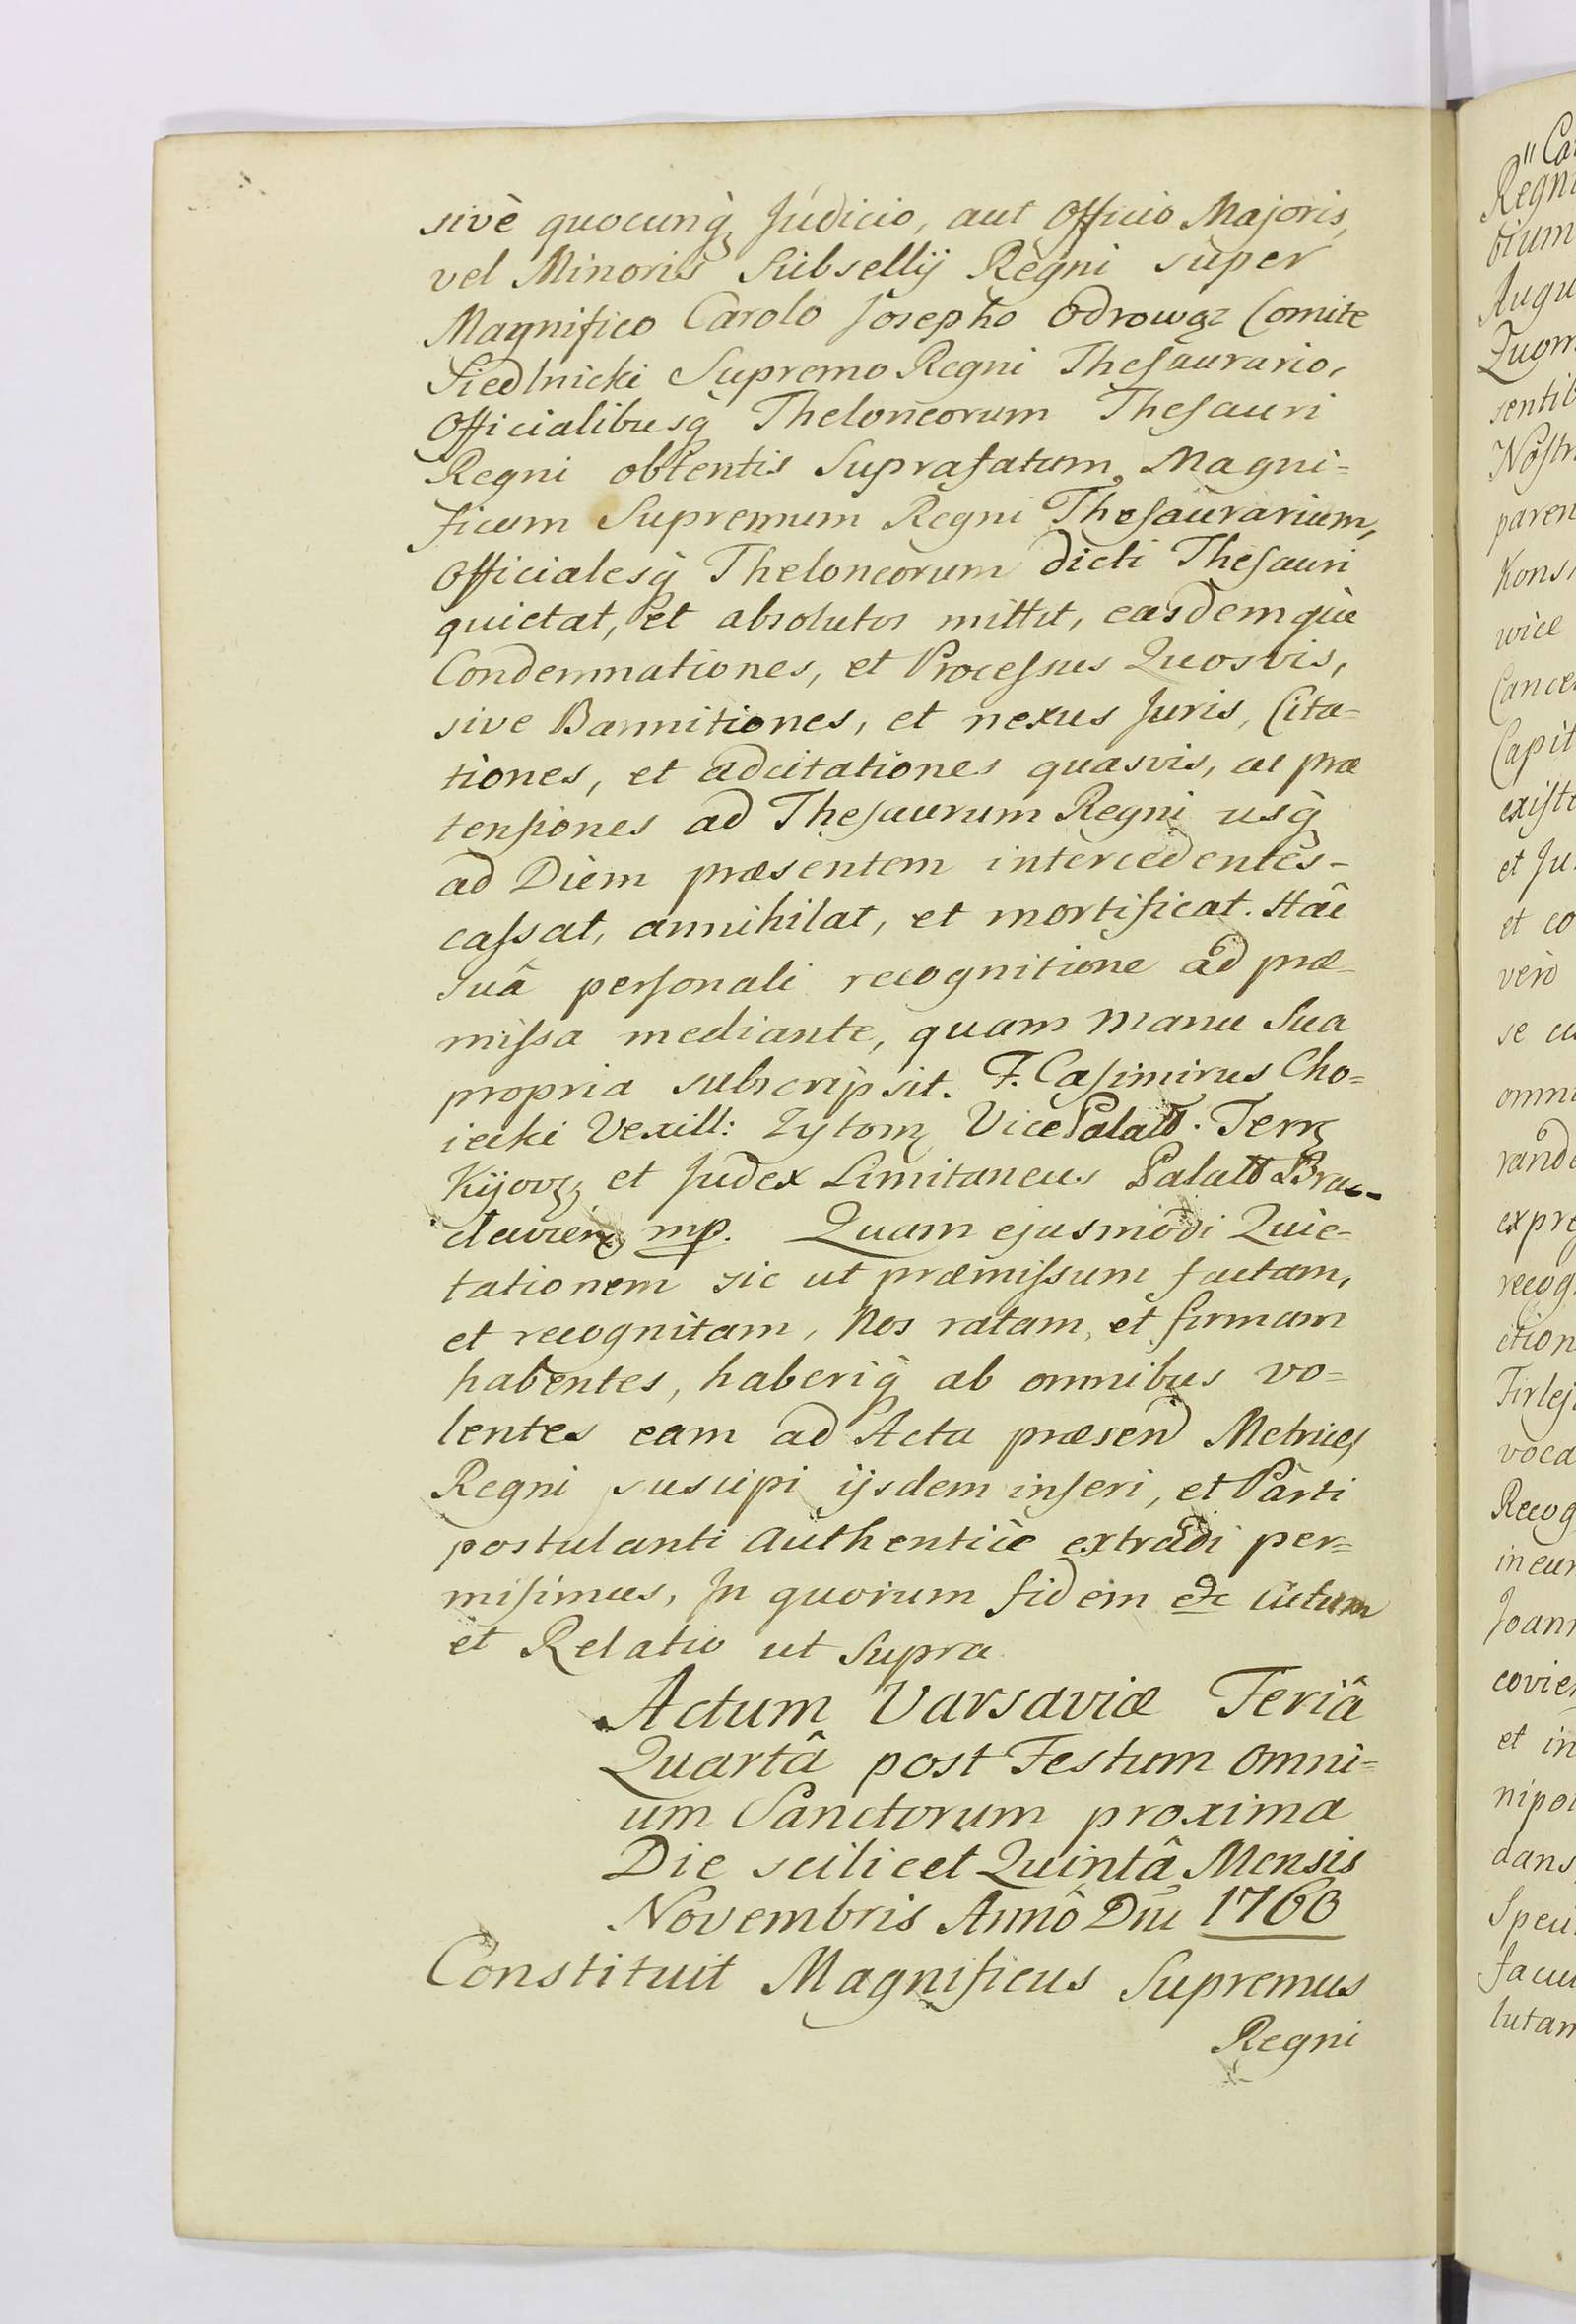 sivè quocunq́ꝫ Judicio, aut Officio Majoris,
vel Minoris Subsellij Regni super
Magnifico Carolo Josepho Odrowąz Comite
Siedlnicki Supremo Regni Thesaurario,
Officialibusq́ Theloneorum Thesauri
Regni obtentis Suprafatum Magni=
ficum Supremum Regni Thesaurarium,
Officialesq́ Theloneorum dicti Thesauri
quietat, et absolutos mittit, easdemque
Condemnationes, et Processus Quosvis,
sive Bannitiones, et nexus Juris, Cita=
tiones, et adcitationes quasvis, ac præ
tensiones ad Thesaurum Regni usq́
ad Diem præsentem intercedentes-
cassat, annihilat, et mortificat. Hâc
suâ personali recognitione ad præ-
missa mediante, quam manu Sua
propria subscripsit. F. Casimirus Cho=
iecki Vexill: Zytomꝫ Vice Palatt. Terrꝫ
Kijovꝫ et Judex Limitaneus Palatt Brac-
clavienꝫ mp. Quam ejusmodi Quie-
tationem sic ut præmissum factam,
et recognitam, Nos ratam, et firmam
habentes, haberiq́ ab omnibus vo=
lentes eam ad Acta præsen Metrices
Regni suscipi ijsdem inseri, et Parti
postulanti Authenticè extradi per=
misimus, In quorum fidem etc Actum
et Relatio ut Supra
Actum Varsaviæ Feriâ
Quartâ post Festum Omni=
um Sanctorum proxima
Die scilicet Quintâ Mensis
Novembris Annô Dni 1760
Constituit Magnificus Supremus
Regni
" Ca
Regni
Augu
sentib
Nostr
paren
Kons
wice
Cance
Capit
existe
et Ju
et co
verò
se cu
omni
rand
expre
recog
ction
Firlej
voca
Recog
in eun
Joann
covien
et in
nipo
dans
Speci
facul
lutam